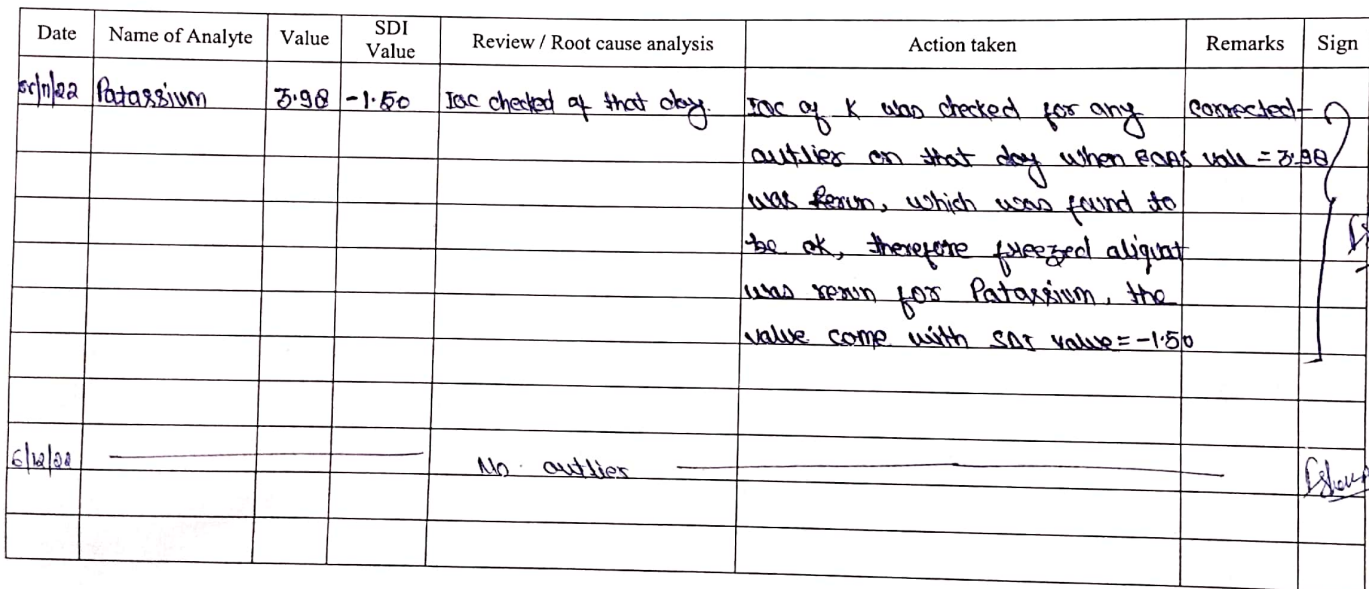 Date Name of Analyte Value SDI Value Review / Root cause analysis Action taken Remarks Sign
Patassium 3.98 -1.50 IQC checked of that day. IQC of K was checked for any corrected
outlier on that day when EQAS valu = 3.98
was Rerun, which was found to
be ok, therefore freezed aliquat
was rerun for Patassium, the
value come with SDI value = -1.50
No outlier